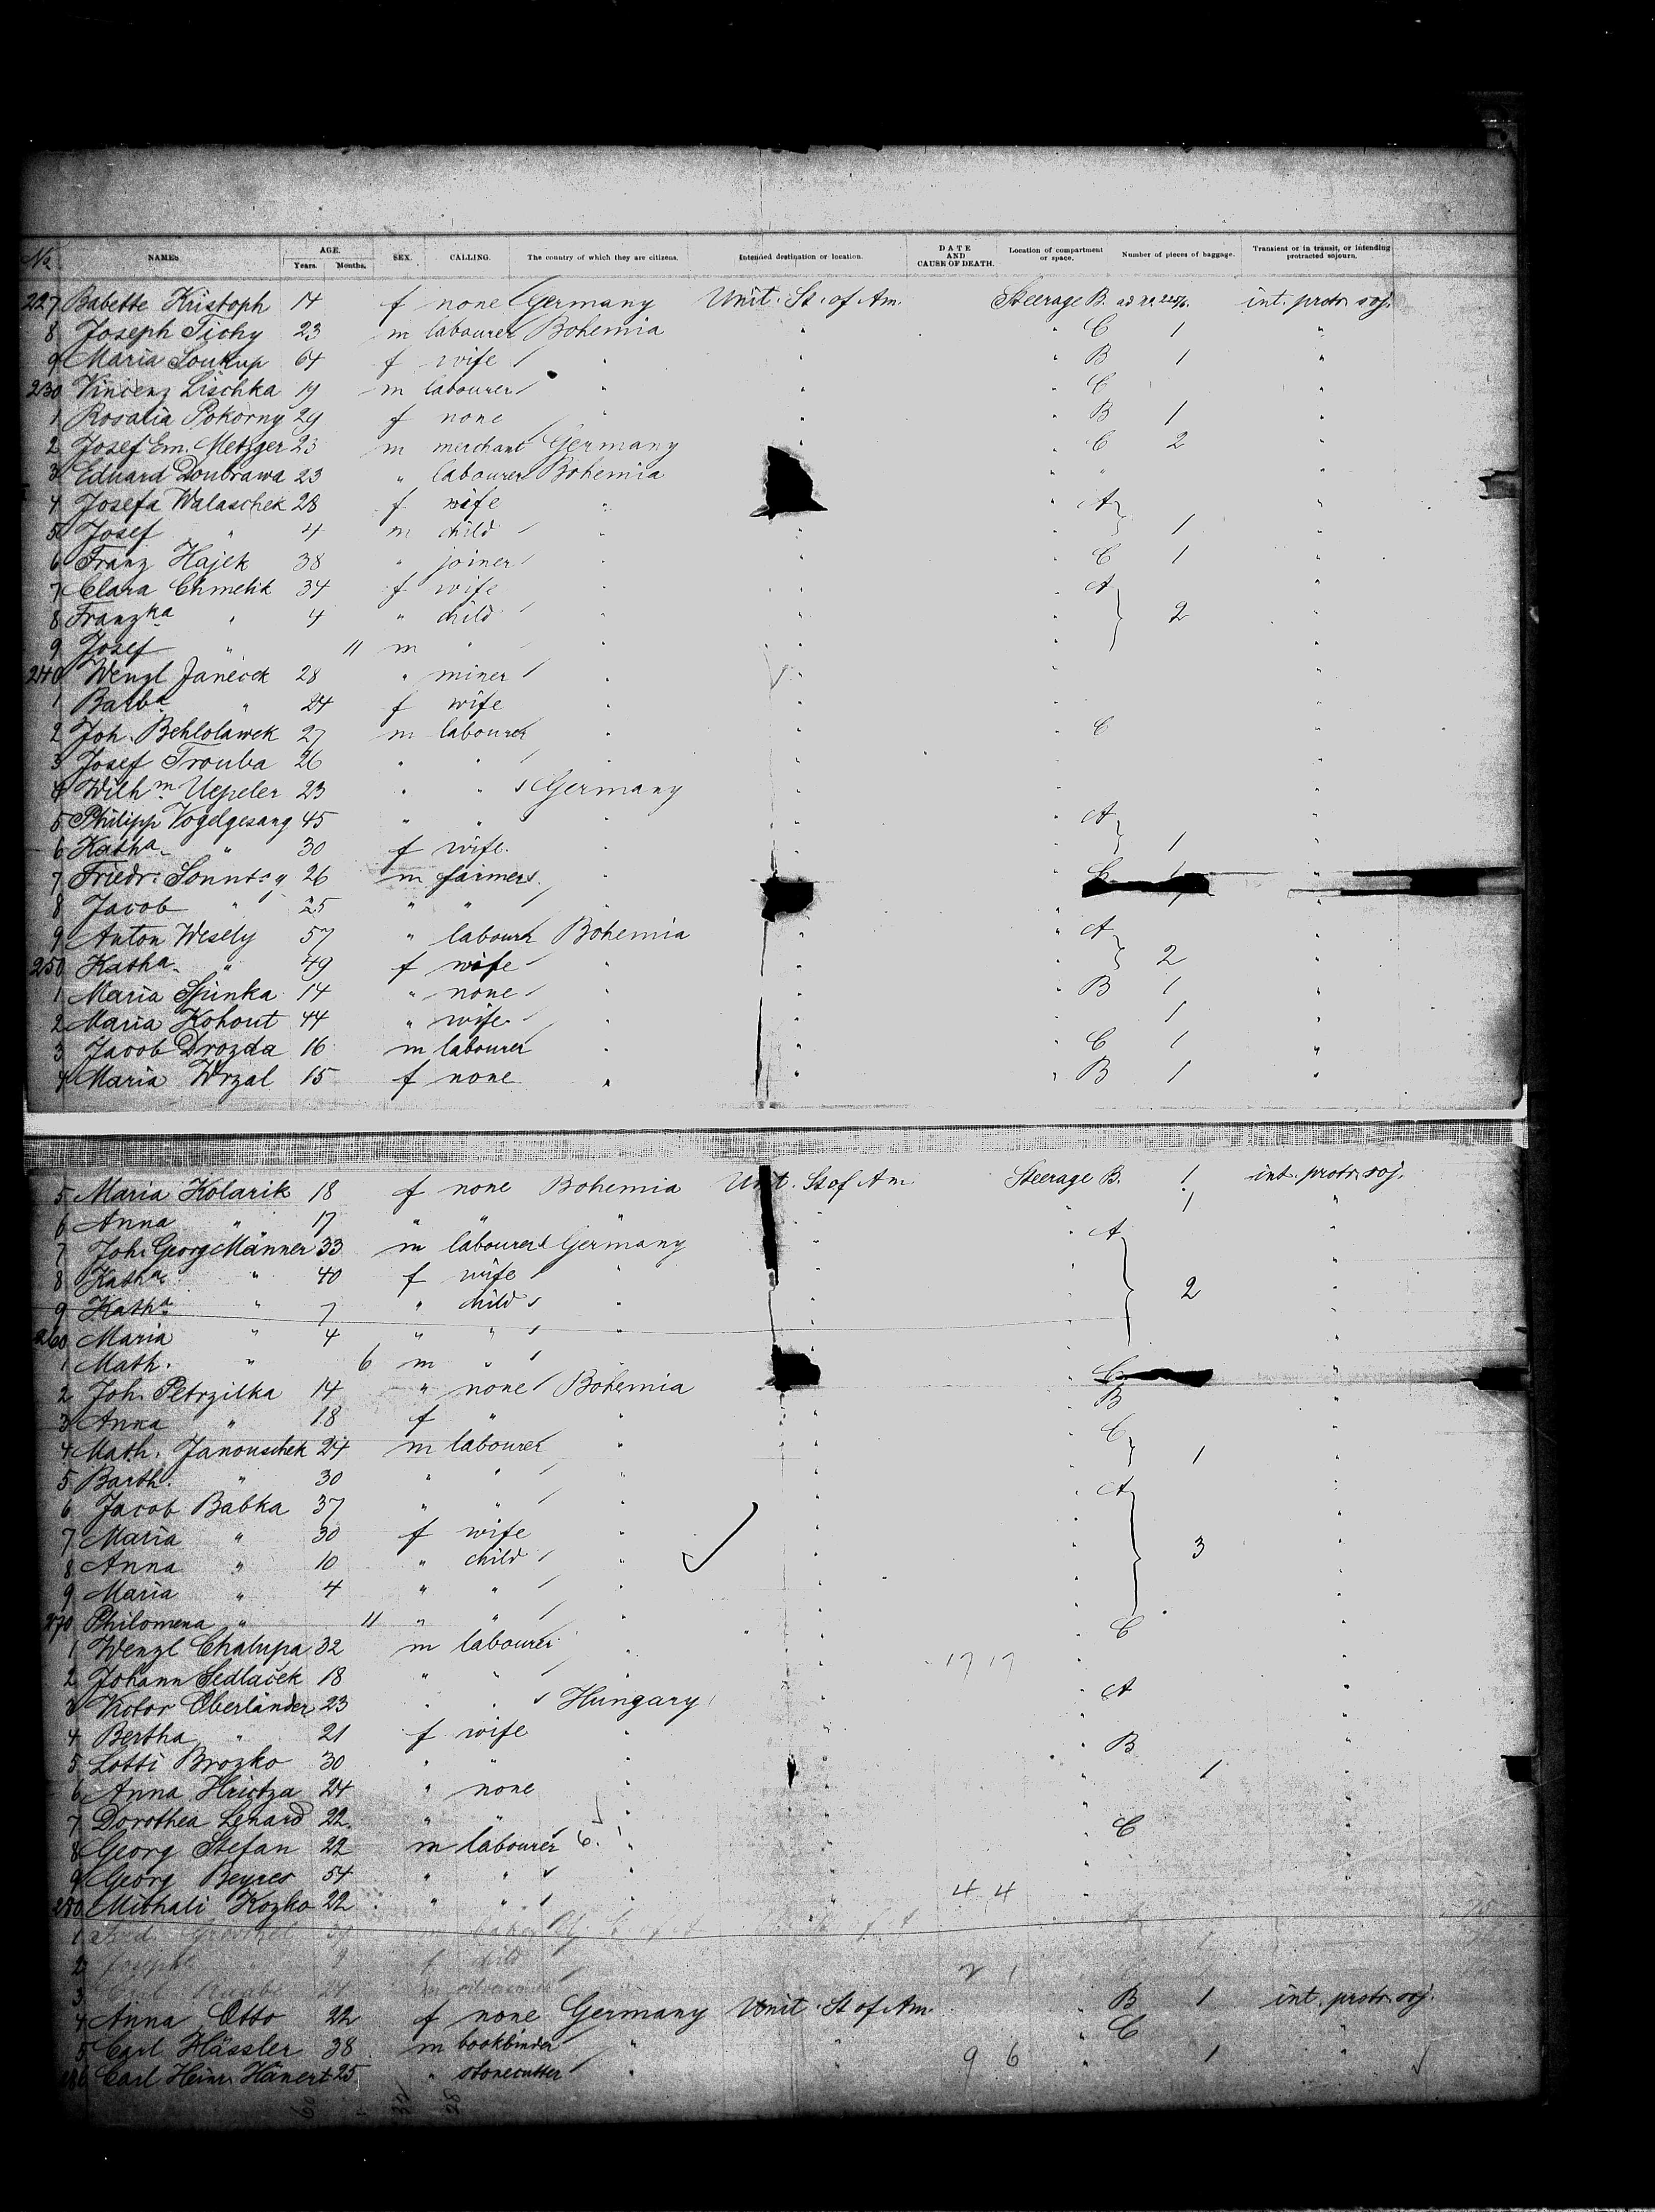 No. NAMES AGE. Years. Months. SEX. CALLING. The country of which they are citizens. Intended destination or location. DATE AND CAUSE OF DEATH. Location of compartment or space. Number of pieces of baggage. Transient or in transit, or intending protracted sojourn.
227 Babette Kristoph 14 f none Germany Unit. St. of Am. Steerage B. int. protr. soj.
8 Joseph Tichy 23 m labourer Bohemia " " C 1 "
9 Maria Soukup 64 f wife " " " B 1 "
230 Vincenz Lischka 19 m labourer " " " C "
1 Rosalia Pokorny 29 f none " " " B 1 "
2 Josef Em. Metzger 23 m merchant Germany " " C 2 "
3 Eduard Doubrawa 23 " labourer Bohemia " " "
4 Josefa Walaschek 28 f wife " " A "
5 Josef " 4 m child " " " 1 "
6 Franz Hajek 38 " joiner " " " C 1 "
7 Clara Chmelik 34 f wife " " " A "
8 Franzka " 4 " child " " " 2 "
9 Josef " 11 m " " " " "
240 Wenzl Janecek 28 " miner " " " "
1 Barba " 24 f wife " " " "
2 Joh. Behlolawek 27 m labourer " " " C "
3 Josef Trouba 26 " " " " " "
4 Wilhm. Uepeler 23 " " Germany " " "
5 Philipp Vogelgesang 45 " " " " " A "
6 Katha. " 30 f wife " " " 1 "
7 Friedr. 26 m farmer " " " C 1 "
8 Jacob " 25 " " " " " "
9 Anton Wesely 57 " labourer Bohemia " " A "
250 Katha. " 49 f wife " " " 2 "
1 Maria Spinka 14 " none " " " B 1 "
2 Maria Kohout 44 " wife " " 1 "
3 Jacob Drozda 16 m labourer " " " C 1 "
4 Maria Wrzal 15 f none " " " B 1 "
5 Maria Kolarik 18 f none Bohemia Unit. St of Am. Steerage B. 1 int. protr. soj.
6 Anna " 17 " " " " " 1 "
7 Joh. Georg Männer 33 m labourer Germany " A "
8 Katha. " 40 f wife " " " "
9 Katha. " 7 " child " " " 2 "
260 Maria " 4 " " " " " "
1 Math. " 6 m " " " "
2 Joh. Petrzilka 14 " none Bohemia " C "
3 Anna " 18 f " " " " B "
4 Math. Janouschek 24 m labourer " " " C "
5 Barth. " 30 " " " " " 1 "
6 Jacob Babka 37 " " " " " A "
7 Maria " 30 f wife " " " "
8 Anna " 10 " child " " " 3 "
9 Maria " 4 " " " " " "
270 Philomena " 11 " " " " " "
1 Wenzl Chalupa 32 m labourer " " " C "
2 Johann Sedlaček 18 " " " " 17 17 " "
3 Oberländer 23 " " Hungary " " A "
4 Bertha " 21 f wife " " " "
5 Lotti Brozko 30 " " " " " B "
6 Anna 24 " none " " " 1 "
7 Dorothea Lenard 22 " " " " " "
8 Georg Stefan 22 m labourer 6. " " " C "
9 Georg Beyres 54 " " " " " "
280 Michali Kozko 22 " " " " 4 4 "
1 39 m baker
2 9 f child 2 1
3 24 m
4 Anna Otto 22 f none Germany Unit. St of Am. " B 1 int. protr. soj.
5 Carl Hässler 38 m bookbinder " " " C "
286 Carl Heinr. Hänert 25 " stonecutter " " 9 6 " 1 "